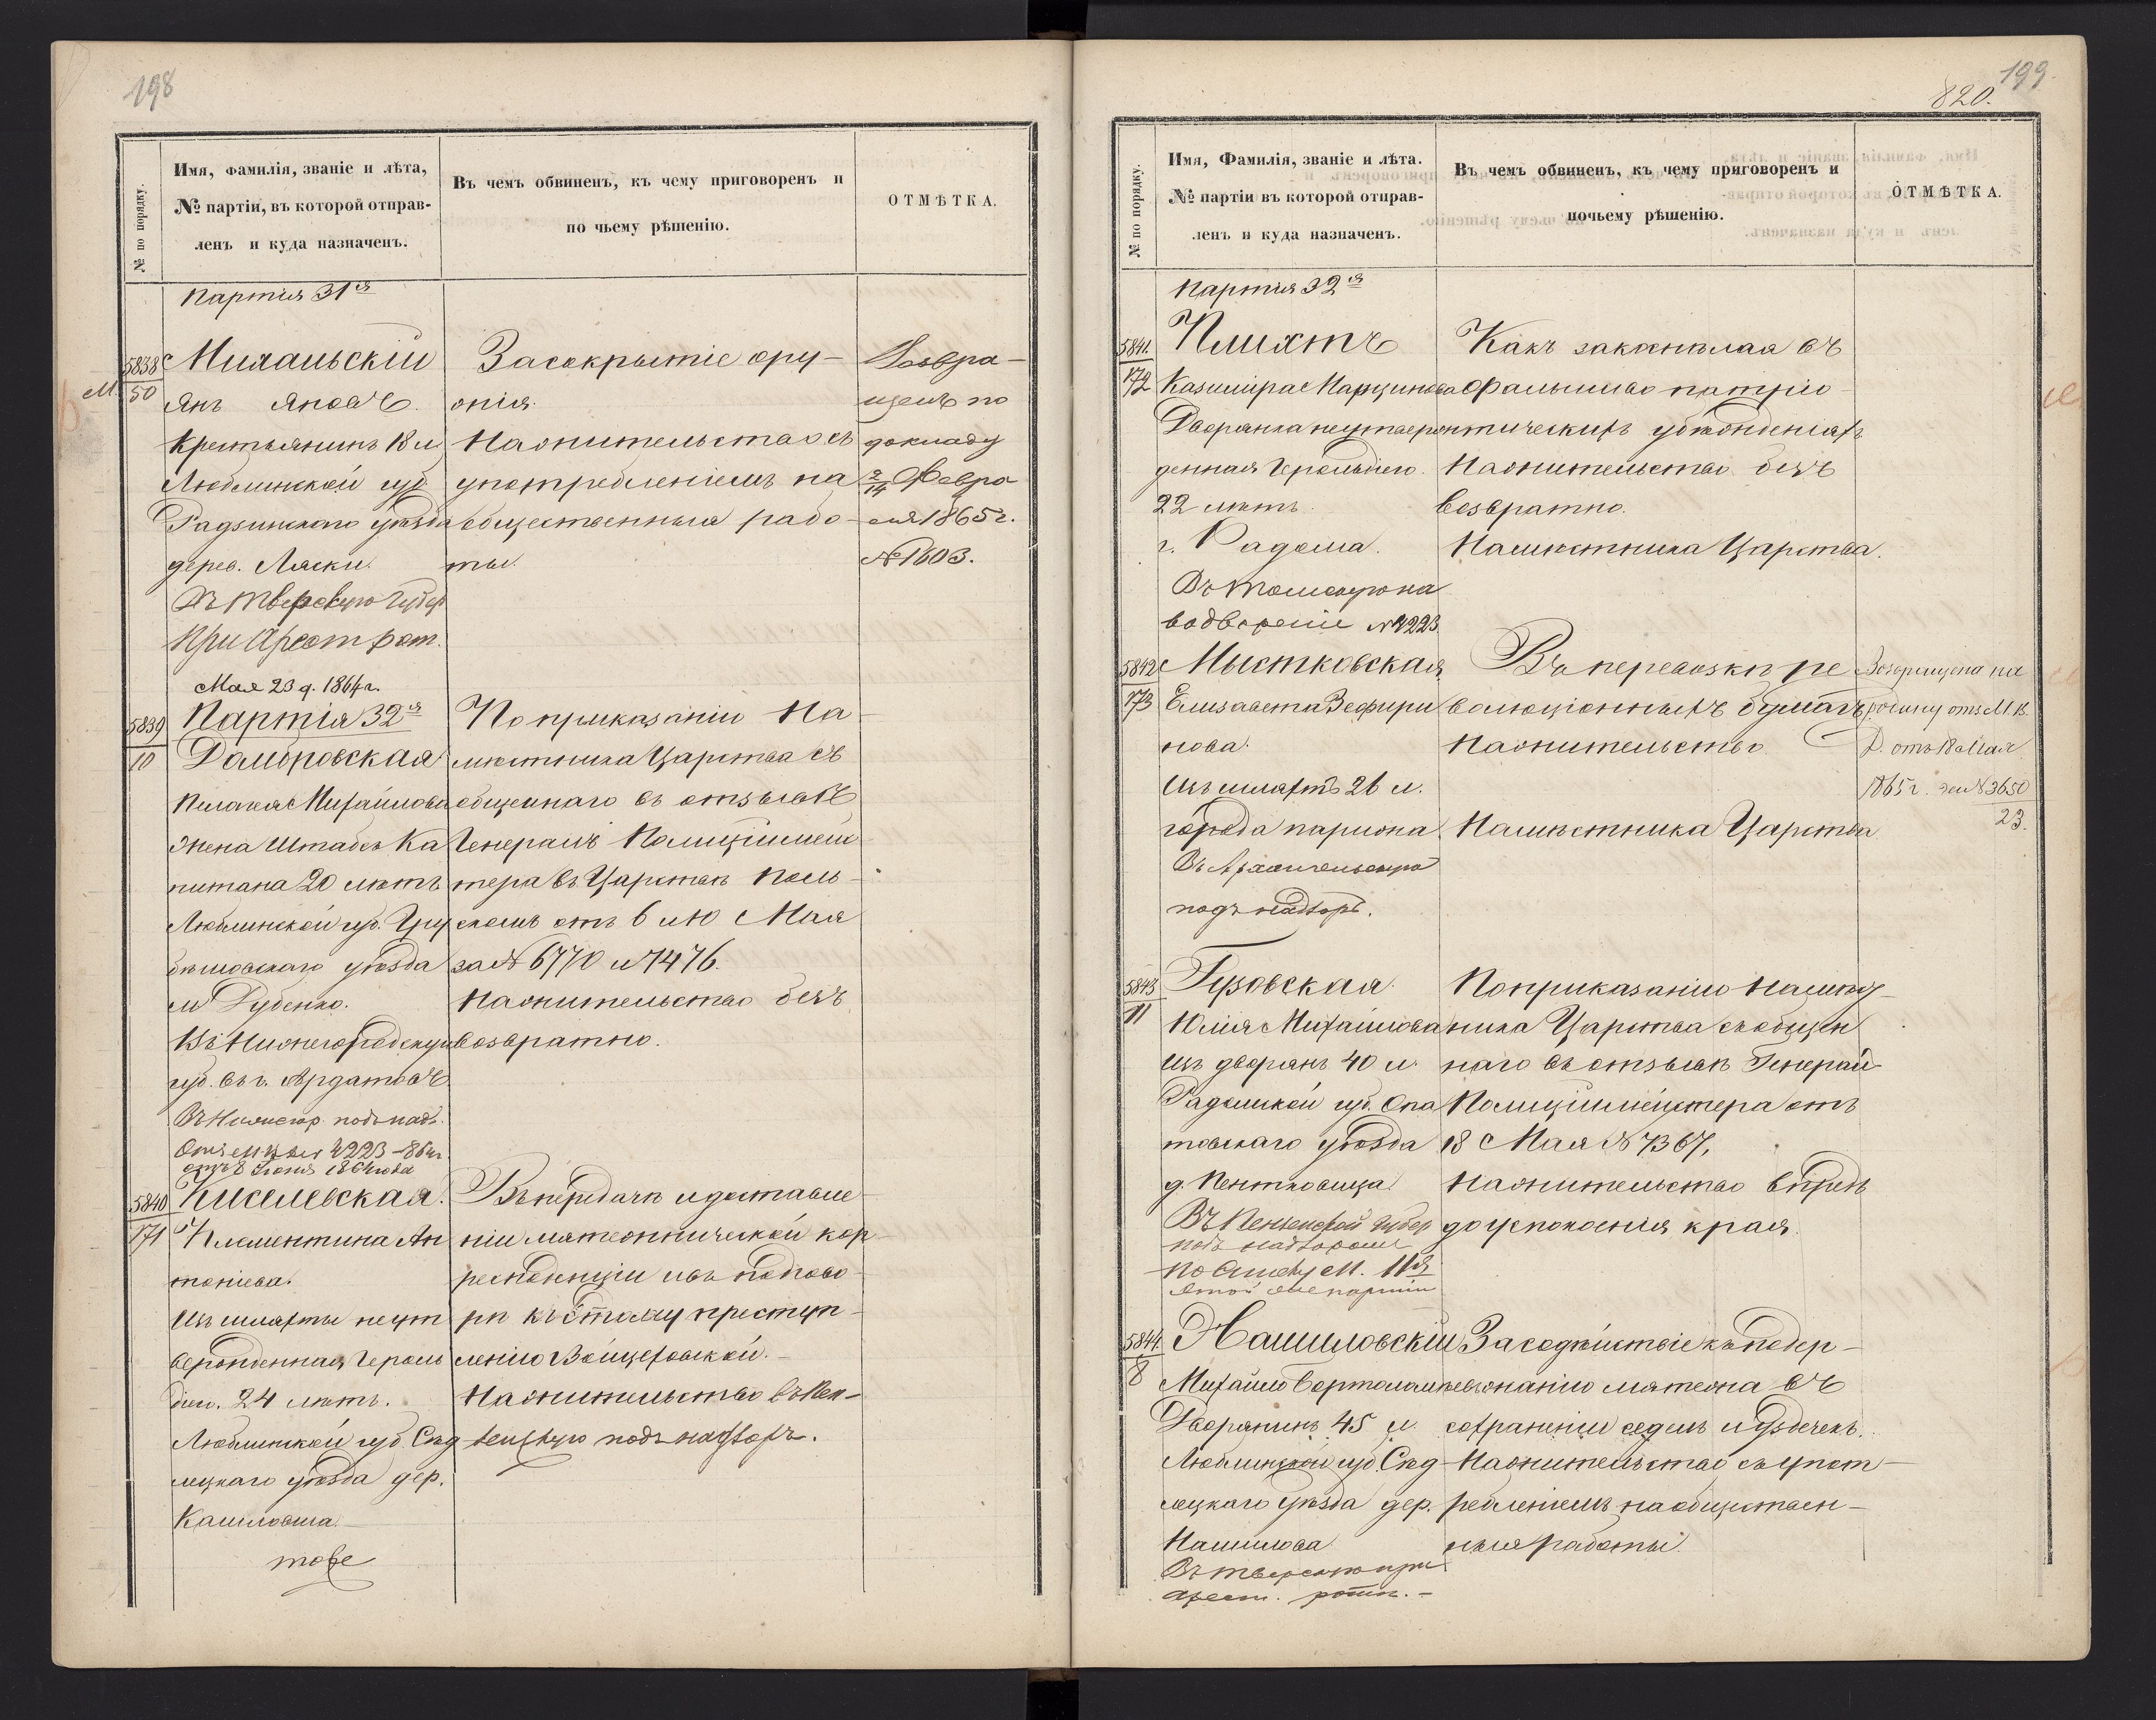 198
№ по порядку.
Имя, фамилія, званіе и лѣта,
№ партіи, въ которой отправ-
ленъ и куда назначенъ.
Въ чемъ обвиненъ, къ чему приговоренъ и
по чьему рѣшенію.
ОТМѢТКА.
Партія 31я
5838
50
М.
Михальскій
Янъ Яновъ.
Крестьянинъ 18 л
Люблинской губ.
Радзинскаго уѣзда
дерев. Ляски.
Въ Тверскую Губер
При Арест рот.
За сокрытіе ору-
жія.
На жительство съ
употребленіемъ на
общественныя рабо-
ты.
Возвра-
щенъ по
докладу
2/14 Февра
ля 1865 г.
№ 1603.
Мая 23 д. 1864 г.
Партія 32я
5839
10
Домбровская
Пелагея Михайлова
жена Штабсъ Ка
питана 20 лѣтъ
Люблинской губ. Гру
бешовскаго уѣзда
м Дубенко.
Въ Нижегородскую
губ. въ г. Ардатовъ.
Въ Нижегор. подъ над.
от 8 Іюня 1864 года
По приказанію На-
мѣстника Царства со
общеннаго въ отзывѣ
Генералъ Полиціймей
тера въ Царствѣ Поль-
скомъ отъ 6 и 10 Мая
за № 6770 и 7476.
На жительство безъ
возвратно.
5840
171
Киселевская.
Клементина Ан
тоніева.
Изъ шляхты неут
вержденная Героль
діею. 24 лѣтъ.
Люблинской губ. Сѣд
лецкаго уѣзда дер.
Кашловша
тоже
Въ передачѣ и доставле-
ніи мятежнической кор-
респонденціи и въ подгово-
рѣ къ этому преступ-
ленію Войцеховской.-
На жительство въ Пен-
зенскую подъ надзоръ.
199.
820.
№ по порядку.
Имя, Фамилія, званіе и лѣта.
№ партіи въ которой отправ-
ленъ и куда назначенъ.
Въ чемъ обвиненъ, къ чему приговоренъ и
почьему рѣшенію.
ОТМѢТКА.
Партія 32я
5841.
172
Плихтъ
Казимира Марцинова
Дворянка неутвер
жденная Герольдіею.
22 лѣтъ.
г. Радома.
Въ Томскую на
водвореніе № 4223
Какъ закоснѣлая въ
фальшиво патріо-
тическихъ убѣжденіяхъ
На жительство безъ
возвратно.
Намѣстника Царства.
5842
173
Мыстковская
Елизавета Зефири
нова.
Изъ шляхтъ 26 л.
города Парижа
Въ Архангельскую
подъ надзоръ.
Въ перевозкѣ ре
волюціонныхъ бумагъ
На жительство
Намѣстника Царства
Возвращена на
родину отз. М. В.
Д. отъ 18 Мая
1865 г. за № 3650
23.
5843
11
Гузовская.
Юлія Михайлова
Изъ дворянъ 40 л.
Радомской губ. Опа
товскаго уѣзда
д. Пентковица
Въ Пензенской губер
подъ надзоромъ
этой же партіи
По приказанію Намѣст-
ника Царства сообщен
наго въ отзывѣ Генералъ
Полиціймейстера отъ
18 Мая № 7367,
На жительство впредь
до успокоенія края.
5844.
8
Нашиловскій
Михайло Бартоломѣевъ
Дворянинъ 45 л.
Люблинской губ. Сѣд
лецкаго уѣзда дер.
Нашилова
Въ Тверскую при
арест. ротѣ.-
За содѣйствіе къ подер-
жанію мятежа въ
сохраненіи седелъ и уздечекъ.
На жительство съ упот-
ребленіемъ на обществен-
ныя работы.